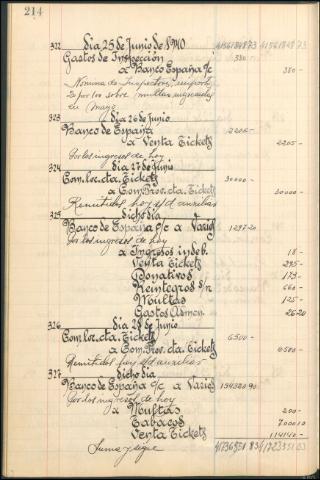 214
322 Día 25 de Junio de 1940
Gastos de Inspección 380
a Banco España c/c 380-
Nómina de Inspectores, importe
en Mayo
323 día 26 de Junio
Banco de España 2205-
a Venta Tickets 2205-
Por los ingresos de hoy
324 día 27 de Junio
Com. loc. cta. Tickets 30000-
a Com. Prov. cta. Tickets 30000-
Remitidos hoy s/d auxiliar
325 dicho día
Banco de España c/c a Varios 1297-20
Por los ingresos de hoy
a Ingresos indeb. 18-
Venta Tickets 295-
Donativos 173-
Reintegros s/n 660-
Multas 125-
Gastos Admon. 26 20
326 día 28 de Junio
Com. loc. cta. Tickets 6500-
a Com. Prov. cta. Tickets 6500-
Remitidos hoy s/d auxiliar
327 dicho día
Banco de España c/c a Varios
Por los ingresos de hoy
a Multas 200-
Tabacos
Venta Tickets 114140-
Suma y sigue